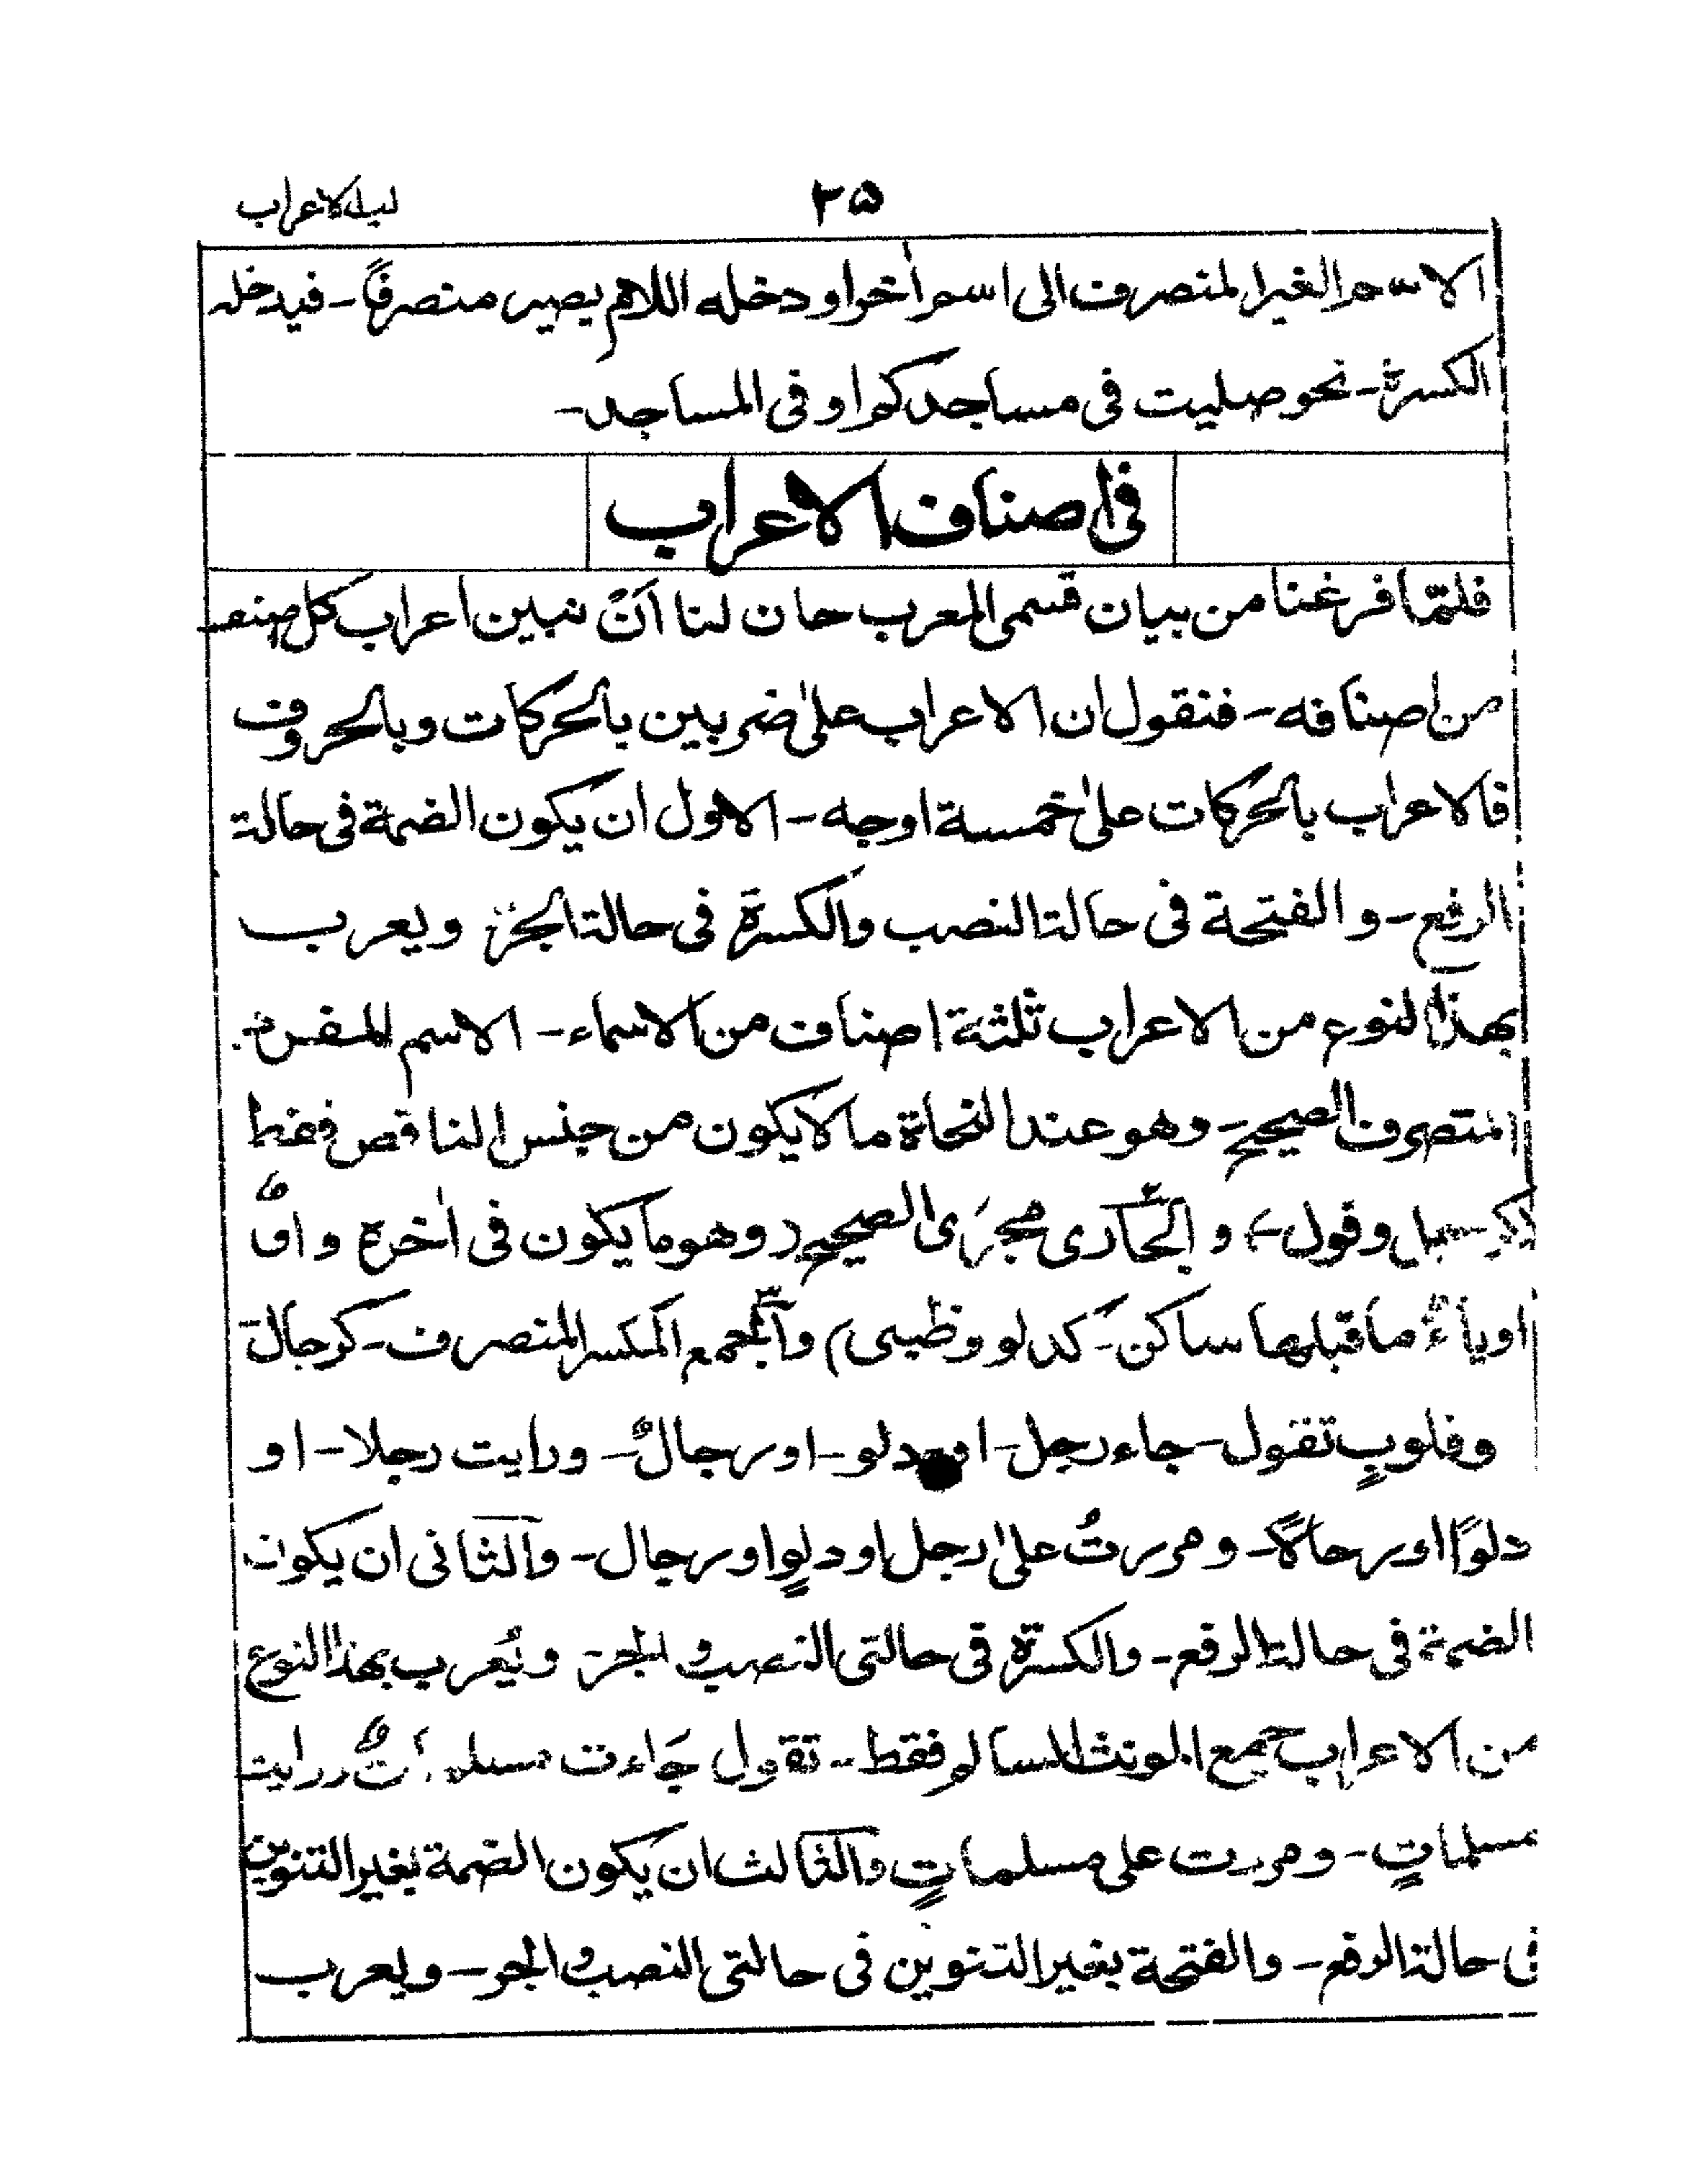 ۲۵
الاسم الغير المنصرف الى اسم اٰخر او دخله اللام يصير منصرفًا - فيدخله
الكسرة - نحو صليت فى مساجدكم او فى المساجد -
فى اصناف الاعراب
فلمّا فرغنا من بيان قسمى المعرب حان لنا اَنْ نبين اعراب كل صنف
من اصنافه - فنقول ان الاعراب علىٰ ضربين بالحركات وبالحروف
فالاعراب بالحركات علىٰ خمسة اوجه - الاول ان يكون الضمة فى حالة
الرفع - والفتحة فى حالة النصب والكسرة فى حالة الجرّ ويعرب
بهذا النوع من الاعراب ثلثة اصناف من الاسماء - الاسم المفرد
المنصرف الصحيح - وهو عند النحاة ما لايكون من جنس الناقص فقط
وقول) و الجّارى مجرَى الصحيح (وهو ما يكون فى اٰخره واوٌ
او ياءٌ ما قبلها ساكن - كدلو وظبى) والجّمع المكسر المنصرف - كرجال
وقلوبٍ تقول - جاء رجل - او دلو - او رجالٌ - ورايت رجلا - او
دلوًا او رجالاً - ومررتُ علىٰ رجل او دلوٍ او رجال - والثانى ان يكون
الضمة فى حالة الرفع - والكسرة فى حالتى النصب والجر ويُعرب بهذا النوع
من الاعراب جمع المونث السالم فقط - تقول جَاءت مسلماتٌ ورايت
مسلماتٍ - ومررت على مسلماتٍ والثالث ان يكون الضمة بغير التنوين
فى حالة الرفع - والفتحة بغير التنوين فى حالتى النصب والجر - ويعرب